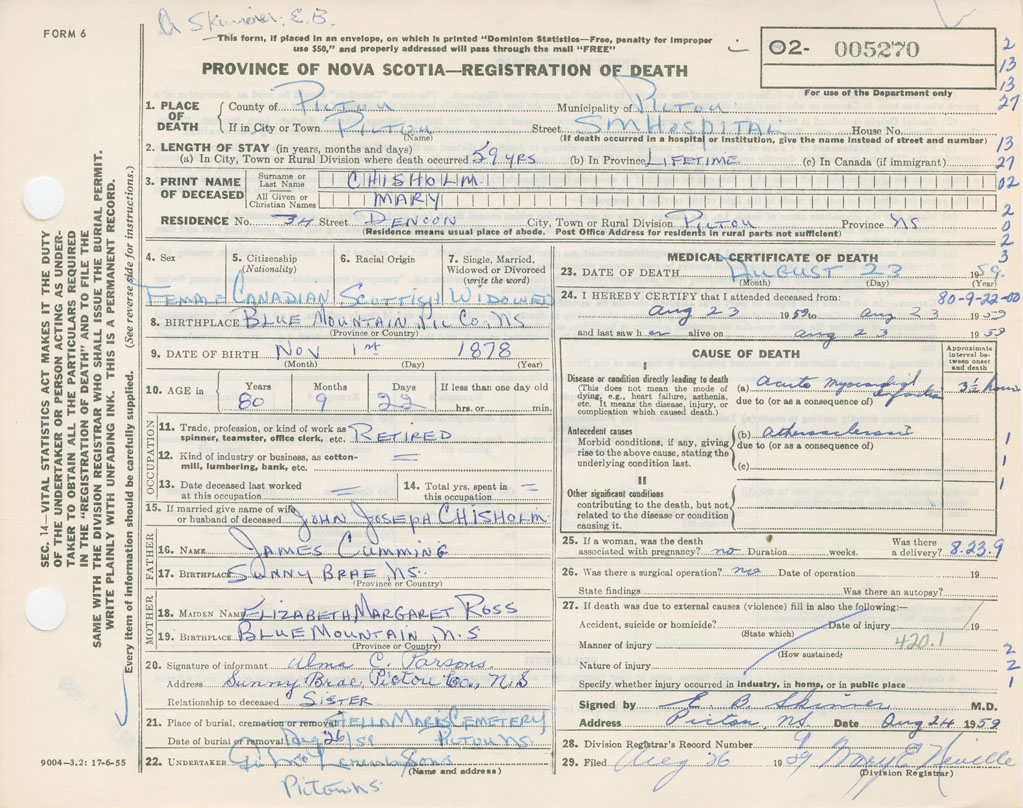 Skinner, E.B.
FORM 6
This form, if placed in an envelope, on which is printed "Dominion Statistics—Free, penalty for improper
use $50," and properly addressed will pass through the mail "FREE"
PROVINCE OF NOVA SCOTIA—REGISTRATION OF DEATH
02- 005270
For use of the Department only
2
13
13
27
13
27
02
2
0
2
3
SEC. 14—VITAL STATISTICS ACT MAKES IT THE DUTY
OF THE UNDERTAKER OR PERSON ACTING AS UNDER-
TAKER TO OBTAIN ALL THE PARTICULARS REQUIRED
IN THE "REGISTRATION OF DEATH" AND TO FILE THE
SAME WITH THE DIVISION REGISTRAR WHO SHALL ISSUE THE BURIAL PERMIT.
WRITE PLAINLY WITH UNFADING INK. THIS IS A PERMANENT RECORD.
Every item of information should be carefully supplied. (See reverse side for instructions.)
1. PLACE OF DEATH
County of Pictou Municipality of Pictou
If in City or Town Pictou Street SM Hospital House No.
(Name) (If death occurred in a hospital or institution, give the name instead of street and number)
2. LENGTH OF STAY (in years, months and days)
(a) In City, Town or Rural Division where death occurred 59 yrs (b) In Province Lifetime (c) In Canada (if immigrant)
3. PRINT NAME OF DECEASED
Surname or Last Name CHISHOLM
All Given or Christian Names MARY
RESIDENCE No. 34 Street Denoon City, Town or Rural Division Pictou Province NS
(Residence means usual place of abode. Post Office Address for residents in rural parts not sufficient)
4. Sex 5. Citizenship (Nationality) 6. Racial Origin 7. Single, Married, Widowed or Divorced (write the word)
Female Canadian Scottish Widowed
8. BIRTHPLACE Blue Mountain, Pic Co, NS
(Province or Country)
9. DATE OF BIRTH Nov 1st 1878
(Month) (Day) (Year)
10. AGE in Years Months Days If less than one day old
80 9 22 hrs. or min.
OCCUPATION
11. Trade, profession, or kind of work as spinner, teamster, office clerk, etc. Retired
12. Kind of industry or business, as cotton-mill, lumbering, bank, etc. =
13. Date deceased last worked at this occupation =
14. Total yrs. spent in this occupation =
15. If married give name of wife or husband of deceased John Joseph CHISHOLM
FATHER
16. NAME James Cumming
17. BIRTHPLACE Sunny Brae NS.
(Province or Country)
MOTHER
18. MAIDEN NAME Elizabeth Margaret Ross
19. BIRTHPLACE Blue Mountain N.S
(Province or Country)
20. Signature of informant Alma C. Parsons.
Address Sunny Brae, Pictou Co., N.S
Relationship to deceased Sister
21. Place of burial, cremation or removal Stella Maris Cemetery
Date of burial or removal Aug 26/59 Pictou NS.
22. UNDERTAKER Sons
(Name and address)
Pictou NS
9004-3.2: 17-6-55
MEDICAL CERTIFICATE OF DEATH
23. DATE OF DEATH August 23 1959.
(Month) (Day) (Year)
24. I HEREBY CERTIFY that I attended deceased from: 80-9-22-00
Aug 23 1959 to Aug 23 1959
and last saw h er alive on Aug 23 1959
CAUSE OF DEATH
Approximate interval between onset and death
I
Disease or condition directly leading to death
(This does not mean the mode of dying, e.g., heart failure, asthenia, etc. It means the disease, injury, or complication which caused death.)
(a) Acute myocardial infarction 3½ hours
due to (or as a consequence of)
Antecedent causes
Morbid conditions, if any, giving rise to the above cause, stating the underlying condition last.
(b) atherosclerosis
due to (or as a consequence of)
(c)
1
1
1
II
Other significant conditions
contributing to the death, but not related to the disease or condition causing it.
25. If a woman, was the death associated with pregnancy? no Duration weeks. Was there a delivery? 8.23.9
26. Was there a surgical operation? no Date of operation 19
State findings Was there an autopsy?
27. If death was due to external causes (violence) fill in also the following:—
Accident, suicide or homicide? Date of injury 19
(State which)
Manner of injury 420.1
(How sustained)
Nature of injury
Specify whether injury occurred in industry, in home, or in public place
2
2
1
Signed by E. B. Skinner M.D.
Address Pictou NS Date Aug 24 1959
28. Division Registrar's Record Number
29. Filed Aug 26 1959 Mary E Neville
(Division Registrar)